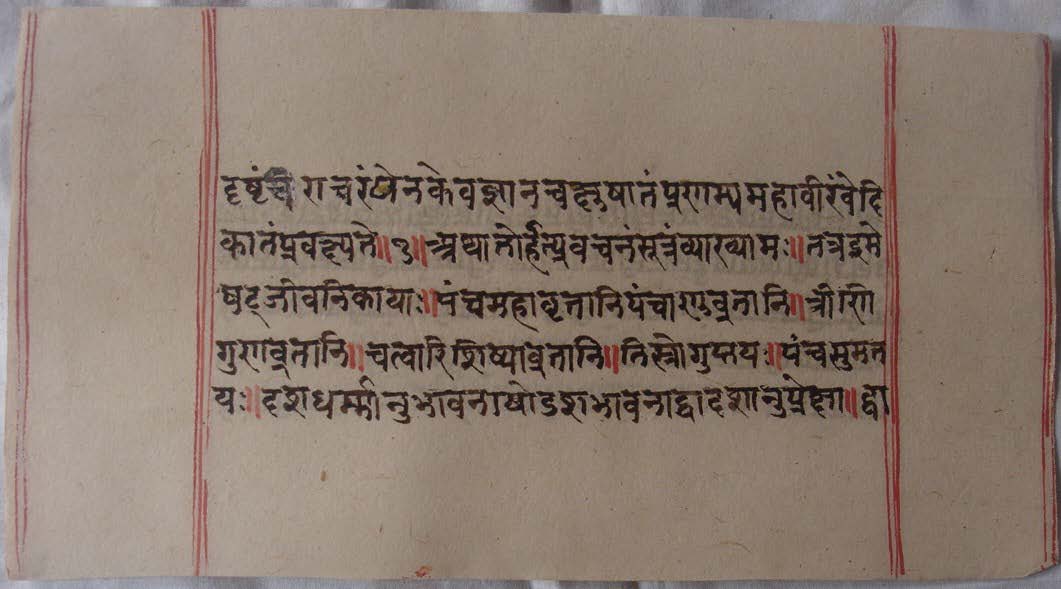 दृष्टंचराचरंयेनकेवज्ञानचक्षुषातंप्रणम्यमहावीरंवेदि
कातंप्रवक्ष्यते॥१॥अथातोर्हत्प्रवचनंसूत्रंव्याख्यामः॥तत्रइमे
षट्जीवनिकायाः॥पंचमहावृतानिपंचाणुव्रतानि॥त्रीणि
गुणव्रतानि॥चत्वारिशिष्याव्रतानि॥तिस्रोगुप्तयः॥पंचसुमत
यः॥दशधर्म्मानुभावनाषोडशभावनाद्वादशानुप्रेक्षा॥द्वा